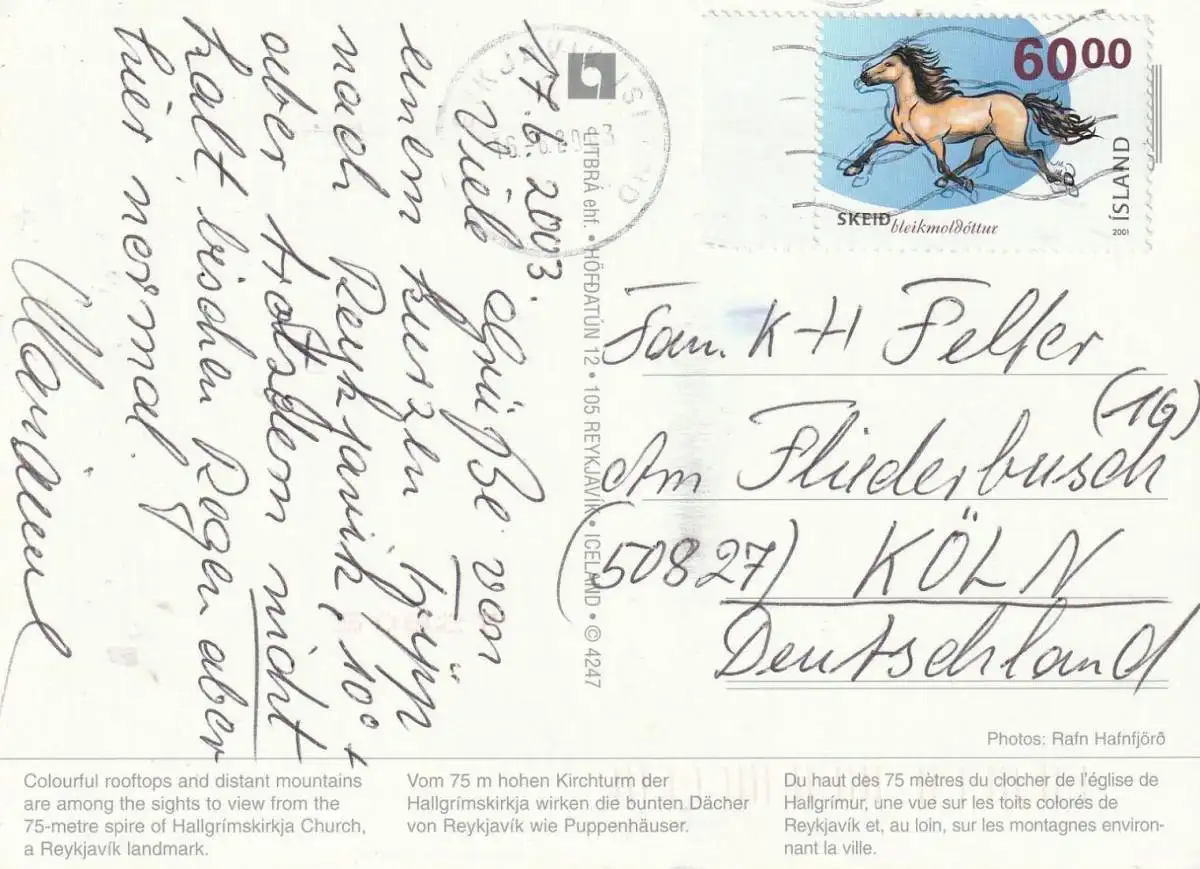 17.6.2003.
Viele Grüße von
einem kurzen Trip
nach Reykjavik, 10° +
aber trotzdem nicht
kalt, bischen Regen aber
hier normal.
LITBRÁ ehf. • HÖFÐATÚN 12 • 105 REYKJAVÍK • ICELAND • © 4247
6000
SKEIÐ
bleikmoldóttur
ÍSLAND
2001
Fam. K-H Felfer
Am Fliederbusch (19)
(50827) KÖLN
Deutschland
Photos: Rafn Hafnfjörð
Colourful rooftops and distant mountains
are among the sights to view from the
75-metre spire of Hallgrímskirkja Church,
a Reykjavík landmark.
Vom 75 m hohen Kirchturm der
Hallgrímskirkja wirken die bunten Dächer
von Reykjavík wie Puppenhäuser.
Du haut des 75 mètres du clocher de l'église de
Hallgrímur, une vue sur les toits colorés de
Reykjavík et, au loin, sur les montagnes environ-
nant la ville.